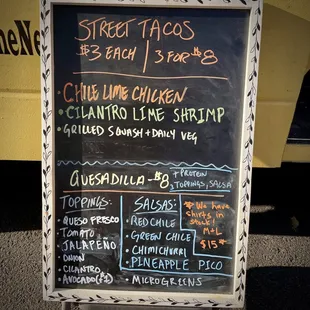 STREET TACOS
$3 EACH | 3 FOR $8
• CHILE LIME CHICKEN
• CILANTRO LIME SHRIMP
• GRILLED SQUASH + DAILY VEG
QUESADILLA - $8
+ PROTEIN
3 TOPPINGS, SALSA
TOPPINGS:
• QUESO FRESCO
• TOMATO
• JALAPEÑO
• ONION
• CILANTRO
• AVOCADO (+1)
• MICROGREENS
SALSAS:
• RED CHILE
• GREEN CHILE
• CHIMICHURRI
• PINEAPPLE PICO
* We have
shirts in
stock!
M + L
$15 *